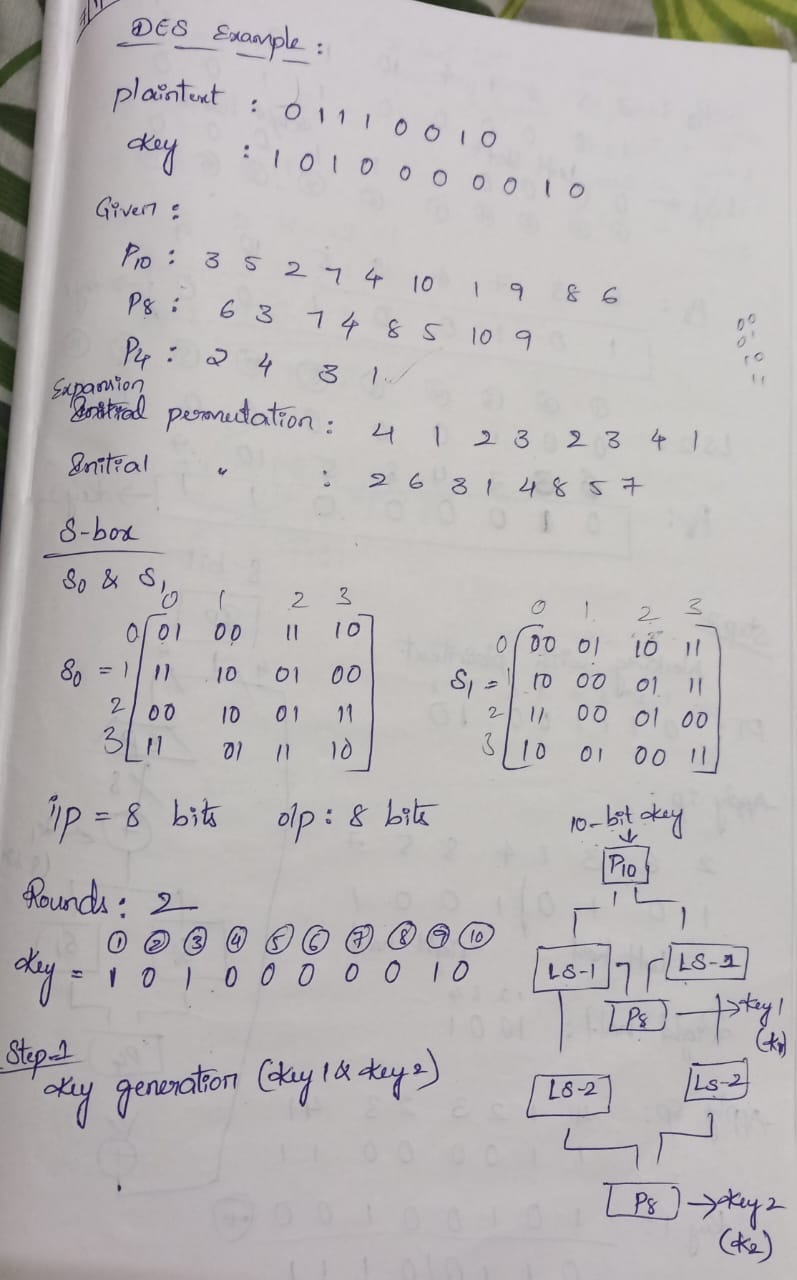 DES Example :
plaintext : 0 1 1 1 0 0 1 0
Key : 1 0 1 0 0 0 0 0 1 0
Given :
P10 : 3 5 2 7 4 10 1 9 8 6
P8 : 6 3 7 4 8 5 10 9
P4 : 2 4 3 1
00
01
10
11
Expansion
permutation : 4 1 2 3 2 3 4 1
Initial " : 2 6 3 1 4 8 5 7
S-box
S0 & S1
0 1 2 3
0 01 00 11 10
S0 = 1 11 10 01 00
2 00 10 01 11
3 11 01 11 10
0 1 2 3
0 00 01 10 11
S1 = 1 10 00 01 11
2 11 00 01 00
3 10 01 00 11
i/p = 8 bits o/p : 8 bits
Rounds : 2
① ② ③ ④ ⑤ ⑥ ⑦ ⑧ ⑨ ⑩
Key = 1 0 1 0 0 0 0 0 1 0
Step-1
Key generation (Key 1 & Key 2)
10-bit key
P10
LS-1 LS-1
P8 → Key 1
(K1)
LS-2 LS-2
P8 → Key 2
(K2)